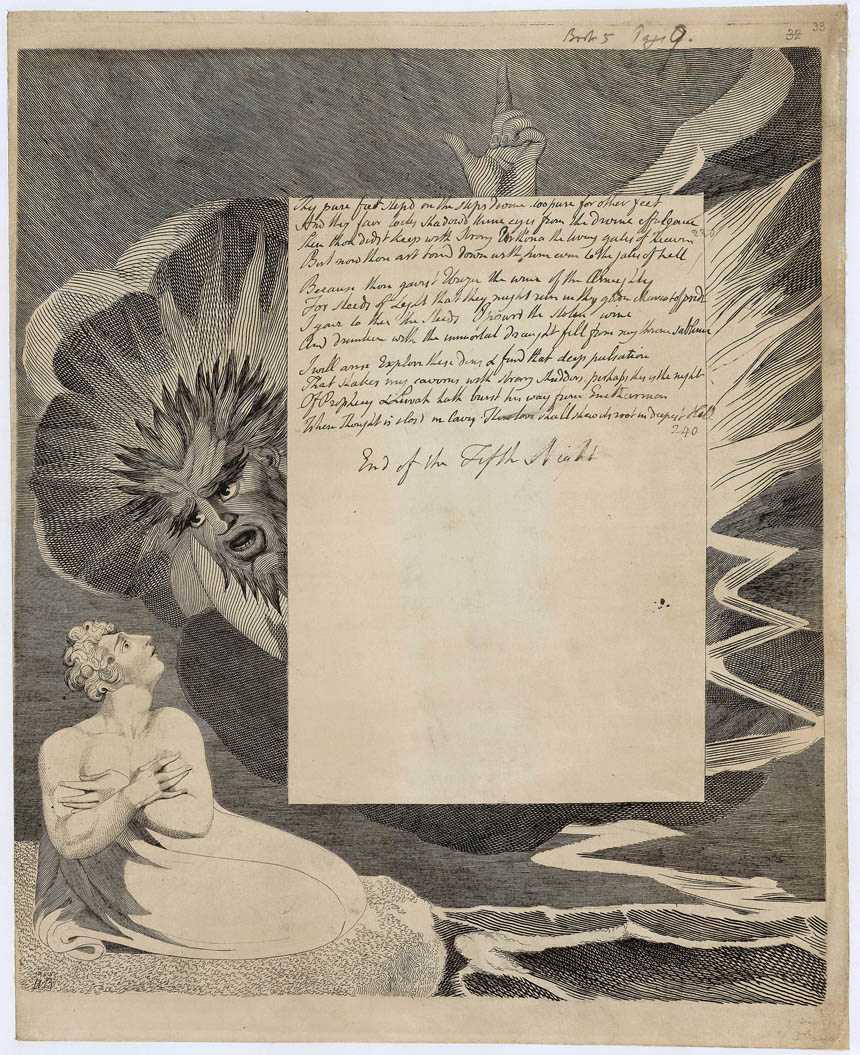 Book 5 Page 9.
32
33
Thy pure feet stepd on the steps divine. too pure for other feet
And thy fair locks shadowd thine eyes from the divine effulgence
Then thou didst keep with Strong Urthona the living gates of heaven
230
But now thou art bound down with him even to the gates of hell
Because thou gavest Urizen the wine of the Almighty
For Steeds of Light that they might run in thy golden chariot of pride
I gave to thee the Steeds I pourd the stolen wine
And drunken with the immortal draught fell from my throne sublime
I will arise Explore these dens & find that deep pulsation
That shakes my caverns with strong shudders. perhaps this is the night
Of Prophecy & Luvah hath burst his way from Enitharmon
When Thought is closd in Caves. Then love shall shew its root in deepest Hell
240
End of the Fifth Night